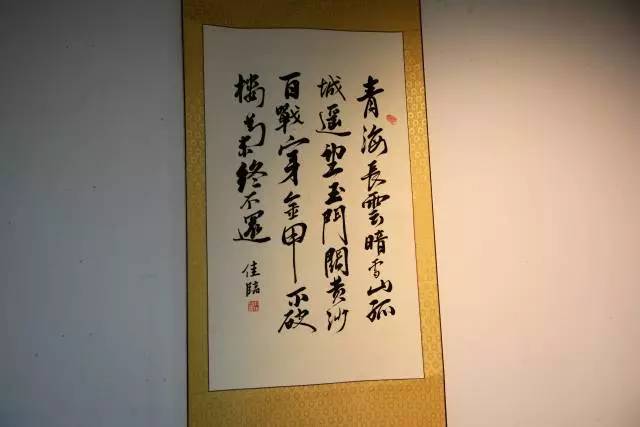 青海長雲暗雪山孤
城遥望玉門關黄沙
百戰穿金甲不破
樓蘭終不還
佳臨